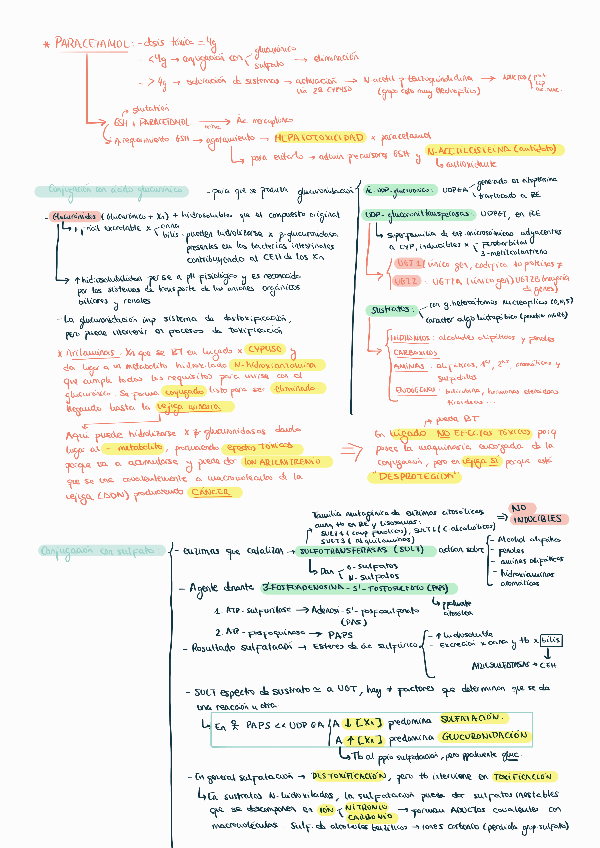 * PARACETAMOL: - dosis tóxica = 4g
- <4g → conjugación con glucurónico sulfato → eliminación
- >4g → saturación de sistemas → activación vía 2ª CYP450 → N-acetil p-benzoquinoneimina (grupo cetó muy electrofílico) → ADUCTOS prot lip ác. nuc.
glutatión
GSH + PARACETAMOL → Ác mercaptúrico
Agotamiento GSH → agotamiento → HEPATOTOXICIDAD x paracetamol
para evitarlo → admin precursores GSH y N-ACETILCISTEÍNA (antídoto)
antioxidante
Conjugación con ácido glucurónico
- para que se produzca glucuronidación
Ác UDP-glucurónico: UDPGA
generado en citoplasma
traslocado a RE
UDP-glucuroniltransferasas UDPGT, en RE
Superfamilia de enz microsómicas adyacentes
a CYP, inducibles x
fenobarbital
3-metilcolantreno
UGT1 (único gen, codifica 10 proteínas ≠
UGT2 UGT2A (único gen) UGT2B (mayoría de genes)
Sustratos:
con g. heteroátomos nucleófilos (O, N, S)
caracter algo lipofílico (penetra mb RE)
HIDROXILOS: alcoholes alifáticos y fenoles
CARBOXILOS
AMINAS: alifáticas, 1ª, 2ª, aromáticas y
sulfidrilos
ENDÓGENO: bilirrubina, hormonas esteroideas
tiroideas...
- Glucurónidos (Glucurónico + Xn) + hidrosolubles que el compuesto original
fácil excretable x orina bilis
pueden hidrolizarse x β-glucuronidasas
presentes en las bacterias intestinales
contribuyendo al CEH de los Xn
↑ hidrosolubilidad per se a pH fisiológico y es reconocido
por los sistemas de transporte de los aniones orgánicos
biliares y renales
- La glucuronidación imp sistema de destoxificación,
pero puede intervenir en procesos de toxificación
* Arilaminas: Xn que se BT en hígado x CYP450 y
da lugar a un metabolito hidroxilado N-hidroxiarilamina
que cumple todos los requisitos para unirse con el
glucurónico. Se forma conjugado listo para ser eliminado
llegando hasta la vejiga urinaria
Aquí puede hidrolizarse x β-glucuronidasas dando
lugar al - metabolito, provocando efectos tóxicos
porque va a acumularse y puede dar IÓN ARILNITRENIO
que se une covalentemente a macromoléculas de la
vejiga (ADN) produciendo CÁNCER
puede BT
⇒ En hígado NO EFECTOS TÓXICOS porq
posee la maquinaria encargada de la
conjugación, pero en vejiga SÍ porque está
"DESPROTEGIDA"
Conjugación con sulfato
Familia multigénica de enzimas citosólicas
aunq tb en RE y lisosomas:
SULT1 (comp fenólicos), SULT2 (alcoholes)
SULT3 (alquilaminas)
⇒ NO INDUCIBLES
- enzimas que catalizan → SULFOTRANSFERASAS (SULT) actúan sobre
- Alcohol alifático
- fenoles
- aminas alifáticas
- hidroxiaminas
aromáticas
Dan O-sulfatos
N-sulfatos
- Agente donante 3'-FOSFOADENOSINA-5'-FOSFOSULFATO (PAPS)
ppalmente
citosólica
1. ATP-sulfurilasa → Adenosil-5'-fosfosulfonato
(PAS)
2. AIP-fosfoquinasa → PAPS
- Resultado sulfatación → Ésteres de ác sulfúrico
- ↑ hidrosoluble
- Excreción x orina y tb x bilis
ARILSULFATASAS → CEH
- SULT espectro de sustrato ≃ a UGT, hay ≠ factores que determinan que se da
una reacción u otra
En ♀ PAPS << UDPGA
A ↓ [Xn] predomina SULFATACIÓN.
A ↑ [Xn] predomina GLUCURONIDACIÓN
Tb al ppio sulfatación, pero ppalmente gluc.
- En general sulfatación → DESTOXIFICACIÓN, pero tb interviene en TOXIFICACIÓN
En sustratos N-hidroxilados, la sulfatación puede dar sulfatos inestables
que se descomponen en IÓN NITRENIO CARBONIO → forman ADUCTOS covalentes con
macromoléculas. Sulf. de alcoholes bencílicos → iones carbonio (pérdida grup sulfato)